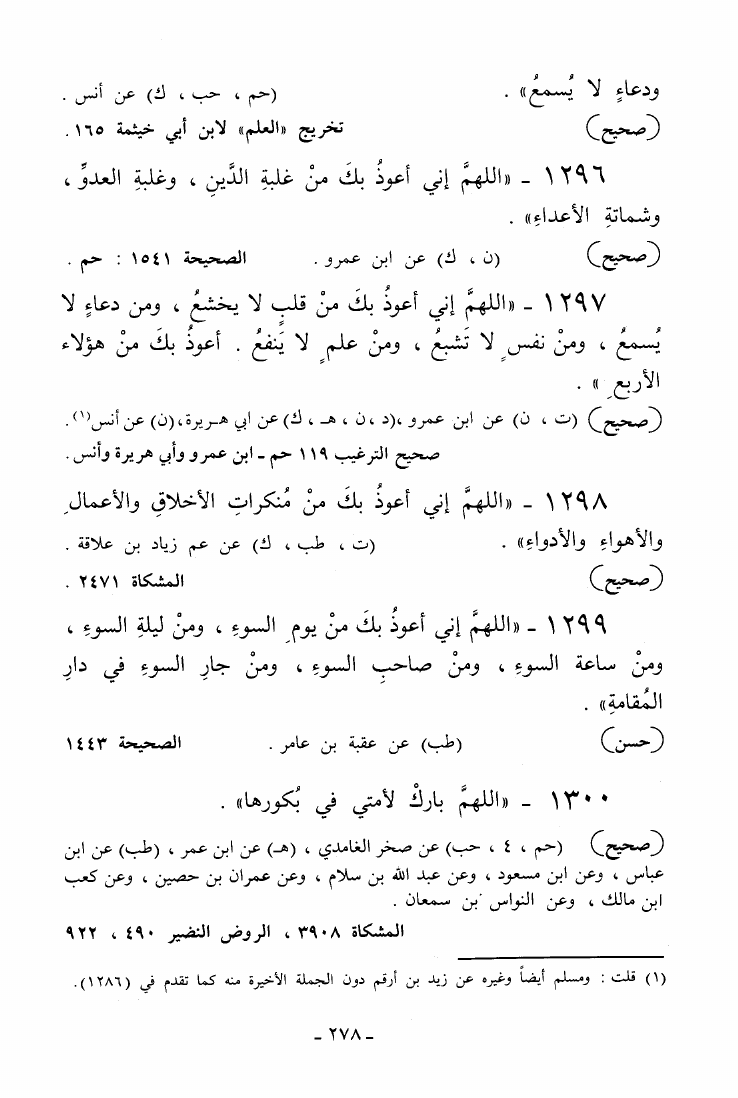 ودعاءٍ لا يُسمعُ» . (حم ، حب ، ك) عن أنس .
(صحيح) تخريج «العلم» لابن أبي خيثمة ١٦٥ .
١٢٩٦ ـ «اللهمَّ إني أعوذُ بكَ منْ غلبةِ الدَّينِ ، وغلبةِ العدوِّ ،
وشماتةِ الأعداءِ» .
(صحيح) (ن ، ك) عن ابن عمرو . الصحيحة ١٥٤١ : حم .
١٢٩٧ ـ «اللهمَّ إني أعوذُ بكَ منْ قلبٍ لا يخشعُ ، ومن دعاءٍ لا
يُسمعُ ، ومنْ نفسٍ لا تَشبعُ ، ومنْ علمٍ لا يَنفعُ . أعوذُ بكَ منْ هؤلاء
الأربعِ » .
(صحيح) (ت ، ن) عن ابن عمرو ،(د ،ن ، هـ ، ك) عن ابي هـريرة،(ن) عن أنس(١).
صحيح الترغيب ١١٩ حم ـ ابن عمرو وأبي هريرة وأنس.
١٢٩٨ ـ «اللهمَّ إني أعوذُ بكَ منْ مُنكراتِ الأخلاقِ والأعمالِ
والأهواءِ والأدواءِ» . (ت ، طب ، ك) عن عم زياد بن علاقة .
(صحيح) المشكاة ٢٤٧١ .
١٢٩٩ ـ «اللهمَّ إني أعوذُ بكَ منْ يومِ السوءِ ، ومنْ ليلةِ السوءِ ،
ومنْ ساعة السوءِ ، ومنْ صاحبِ السوءِ ، ومنْ جارِ السوءِ في دارِ
المُقامةِ» .
(حسن) (طب) عن عقبة بن عامر . الصحيحة ١٤٤٣
١٣٠٠ ـ «اللهمَّ باركْ لأمتي في بُكورها» .
(صحيح) (حم ، ٤ ، حب) عن صخر الغامدي ، (هـ) عن ابن عمر ، (طب) عن ابن
عباس ، وعن ابن مسعود ، وعن عبد الله بن سلام ، وعن عمران بن حصين ، وعن كعب
ابن مالك ، وعن النواس بن سمعان .
المشكاة ٣٩٠٨ ، الروض النضير ٤٩٠ ، ٩٢٢
(١) قلت : ومسلم أيضاً وغيره عن زيد بن أرقم دون الجملة الأخيرة منه كما تقدم في (١٢٨٦).
ـ ٢٧٨ ـ